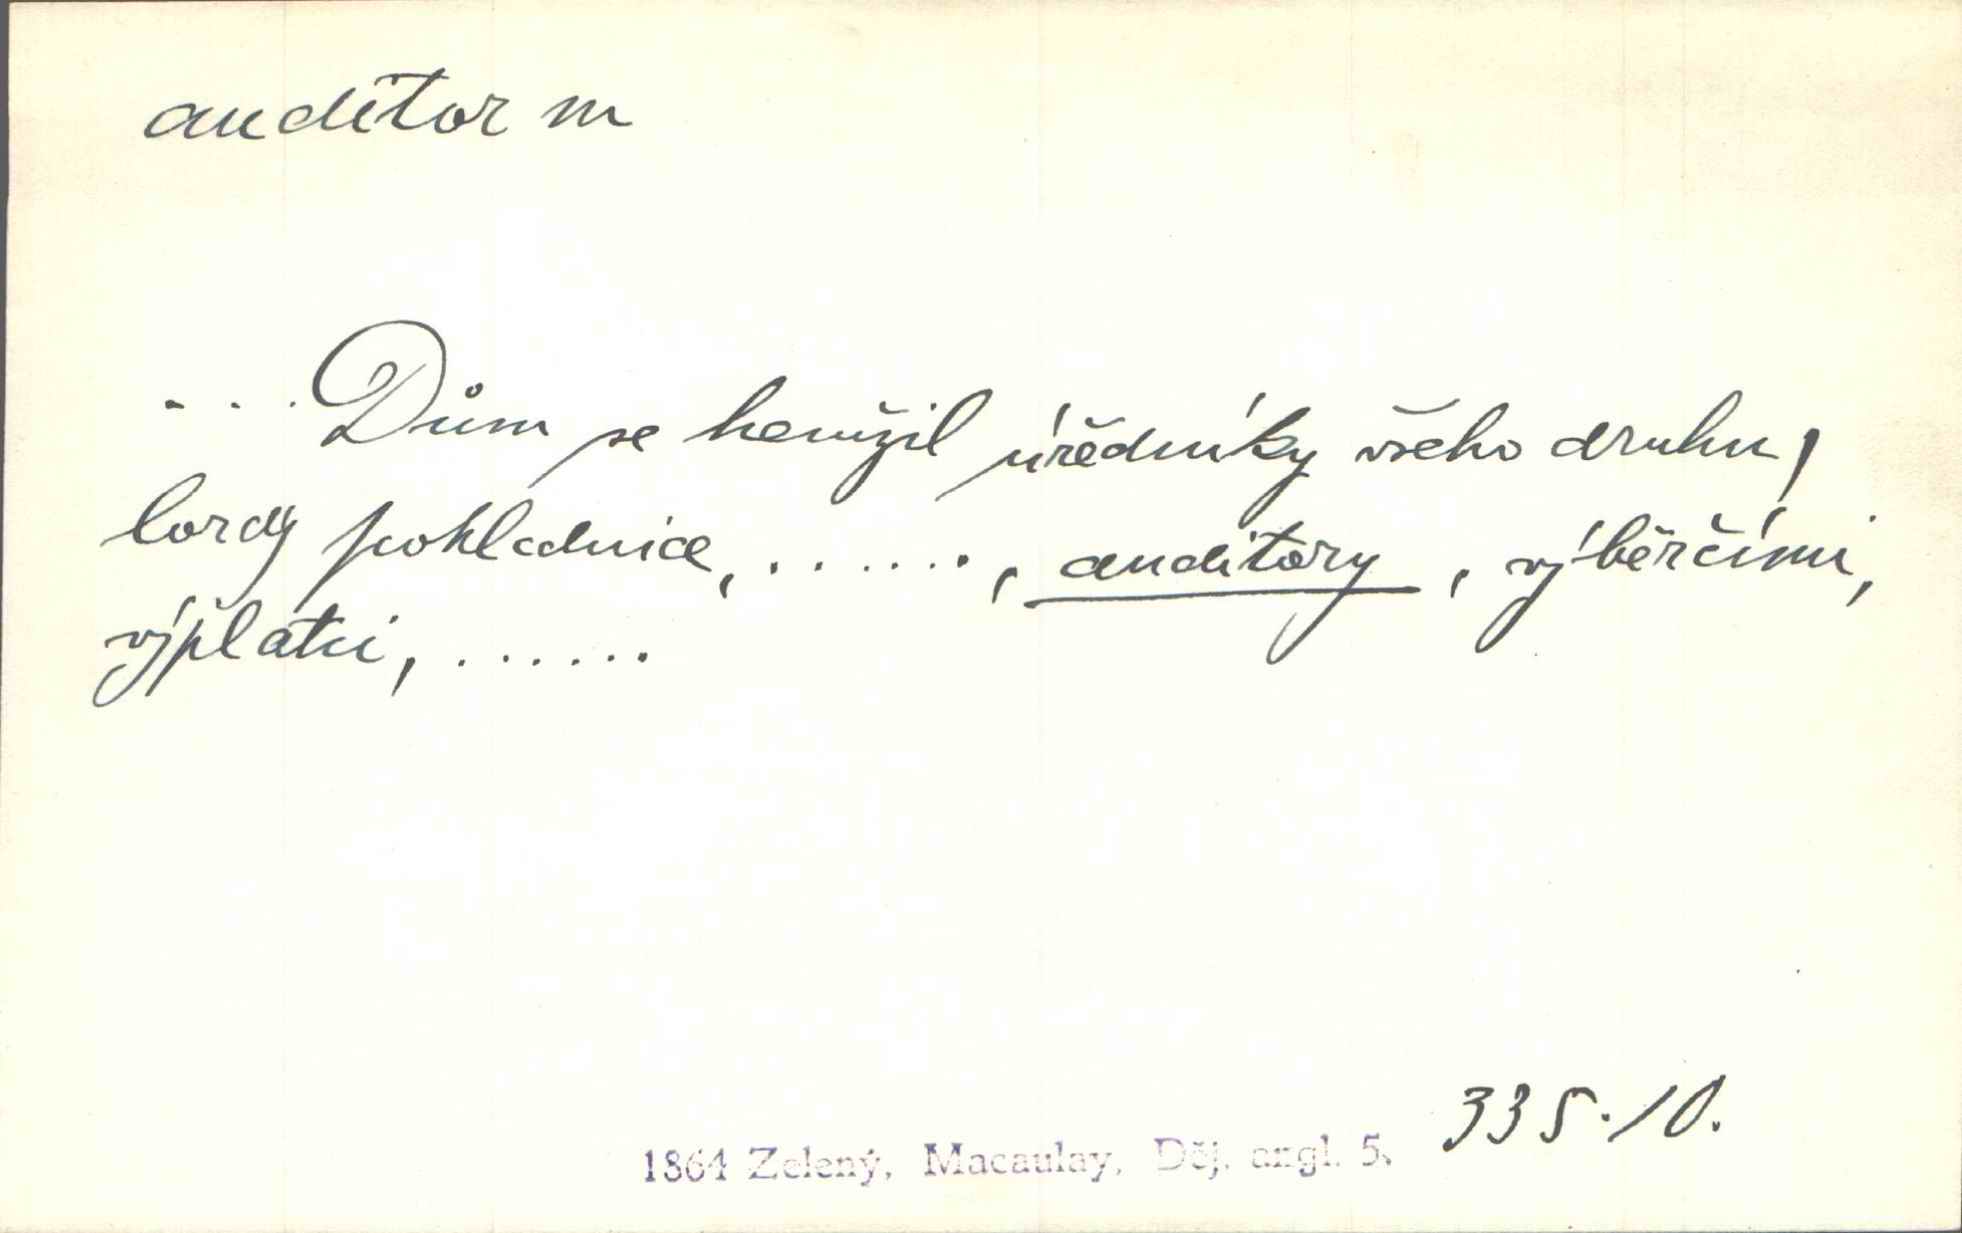 auditor m
...Dům se hemžil úředníky všeho druhu,
lordy pokladnice, ......, auditory, výběrčími,
výplatci, ......
335.10.
1864 Zelený, Macaulay, Děj. angl. 5.